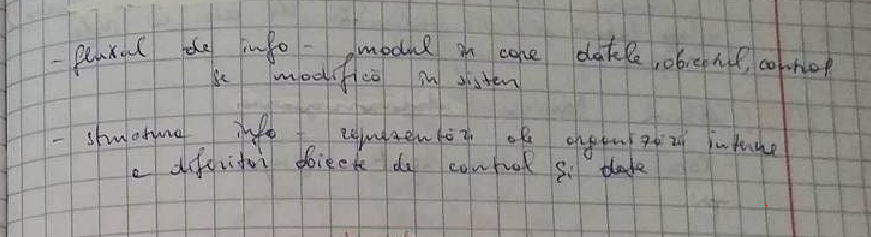 - fluxul de info - modul în care datele, obiectul, control
se modifică în sistem
- structura info - reprezentări ale organizări interne
a diferitor obiecte de control și date